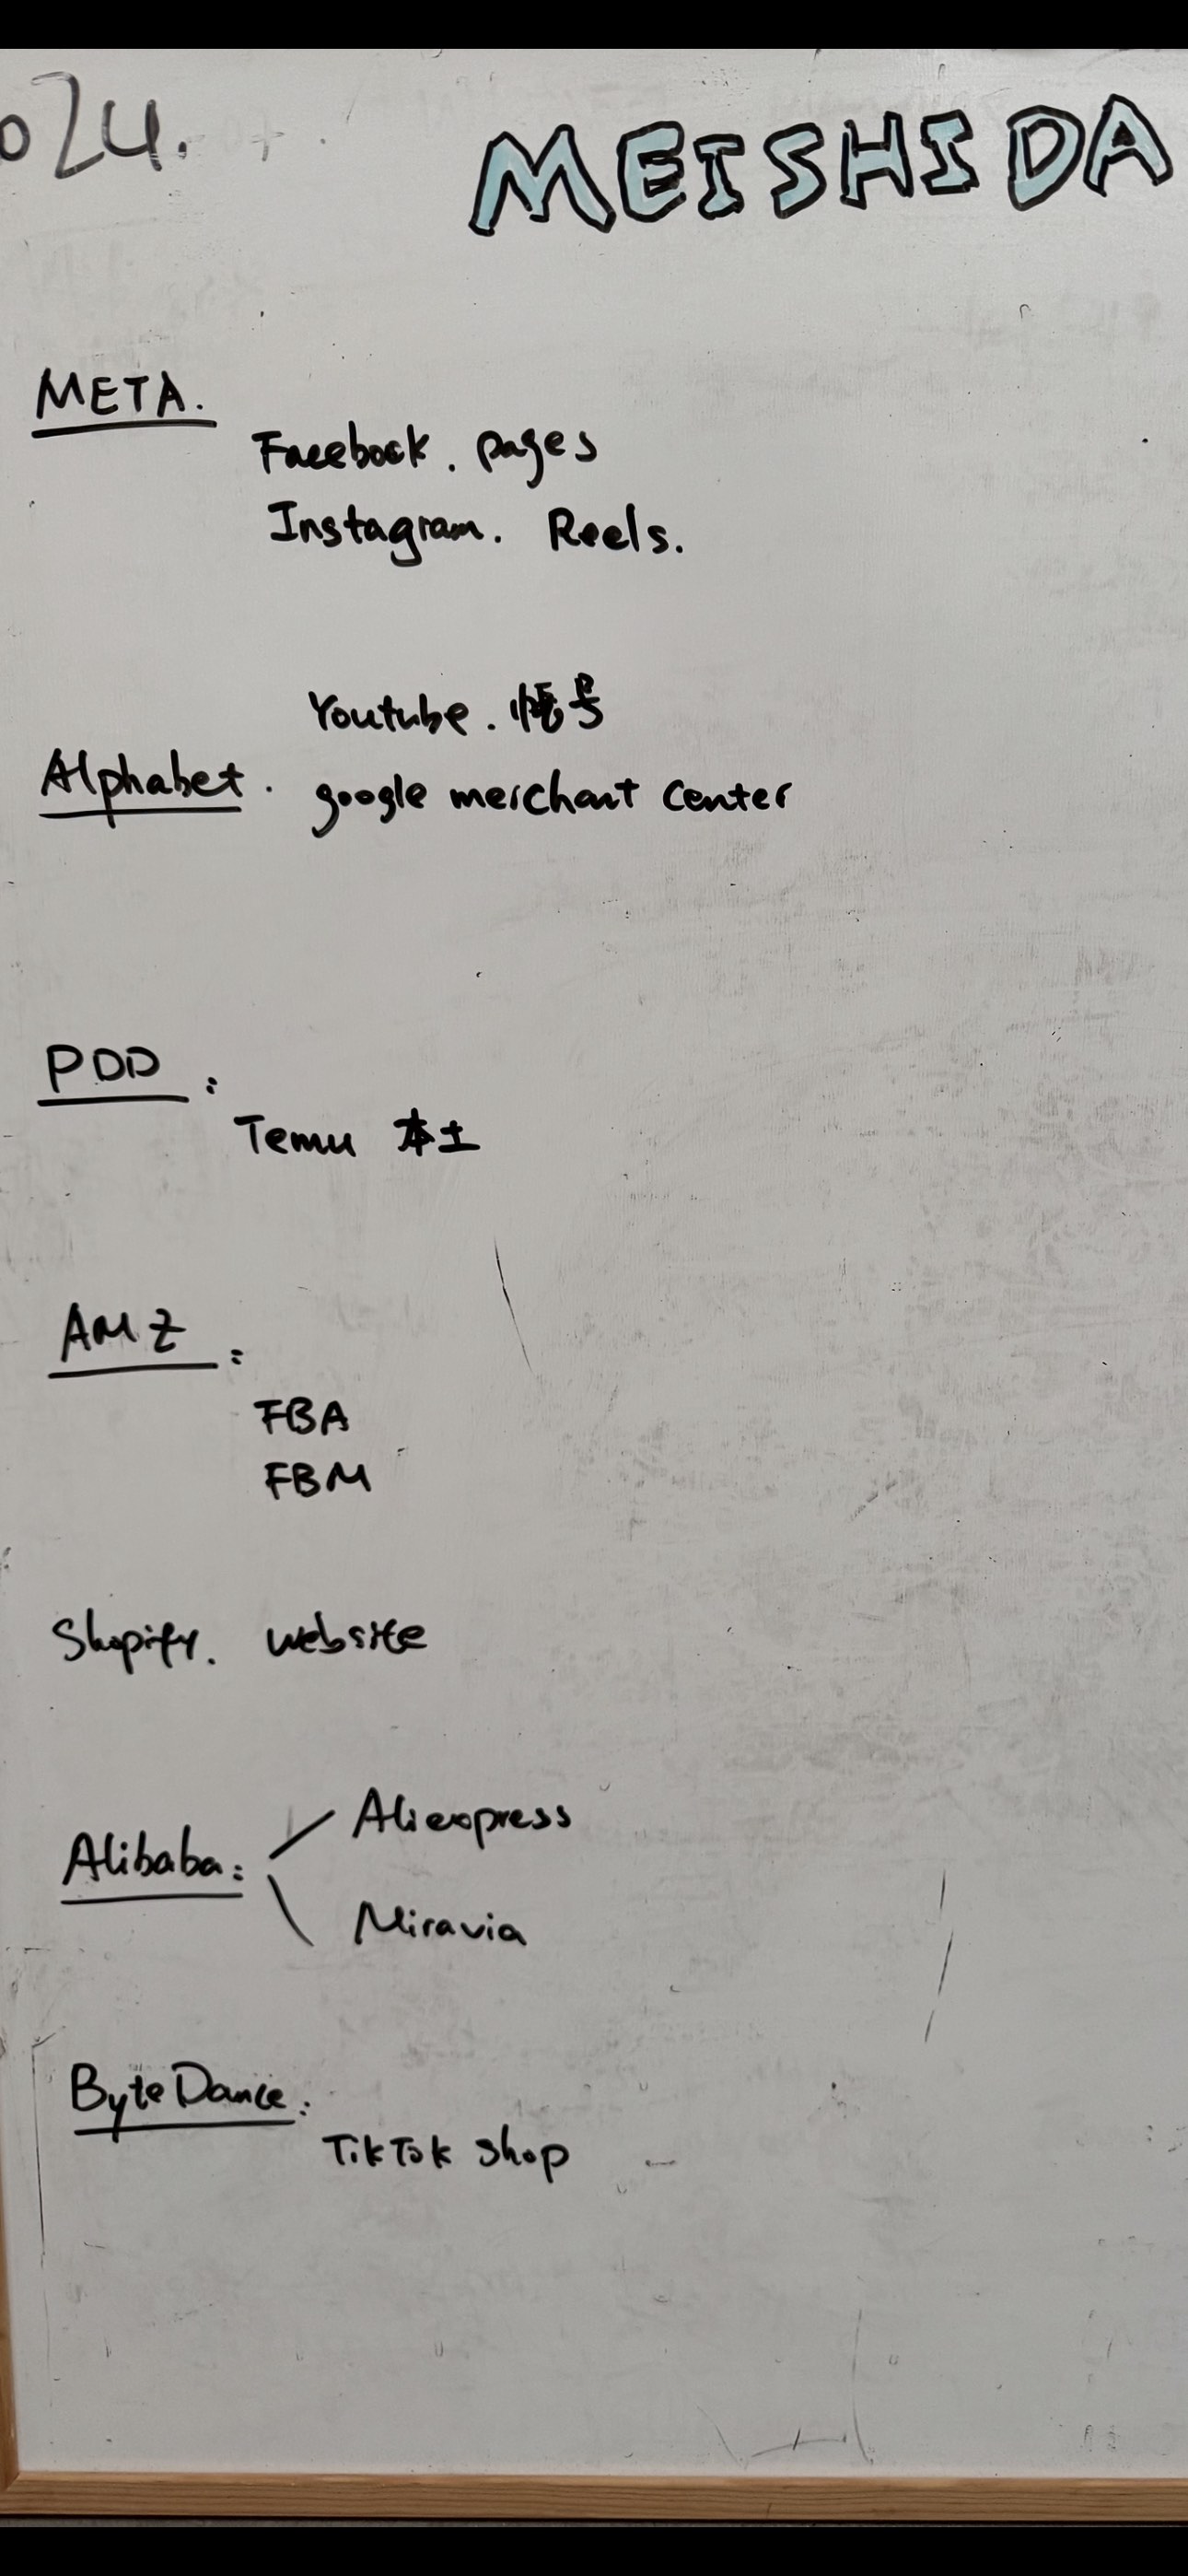 024.
MEISHIDA
META.
Facebook. pages
Instagram. Reels.
Youtube. 帳号
Alphabet.
google merchant center
PDD:
Temu 本土
AMZ:
FBA
FBM
Shopify. website
Aliexpress
Alibaba:
Miravia
ByteDance:
TikTok shop